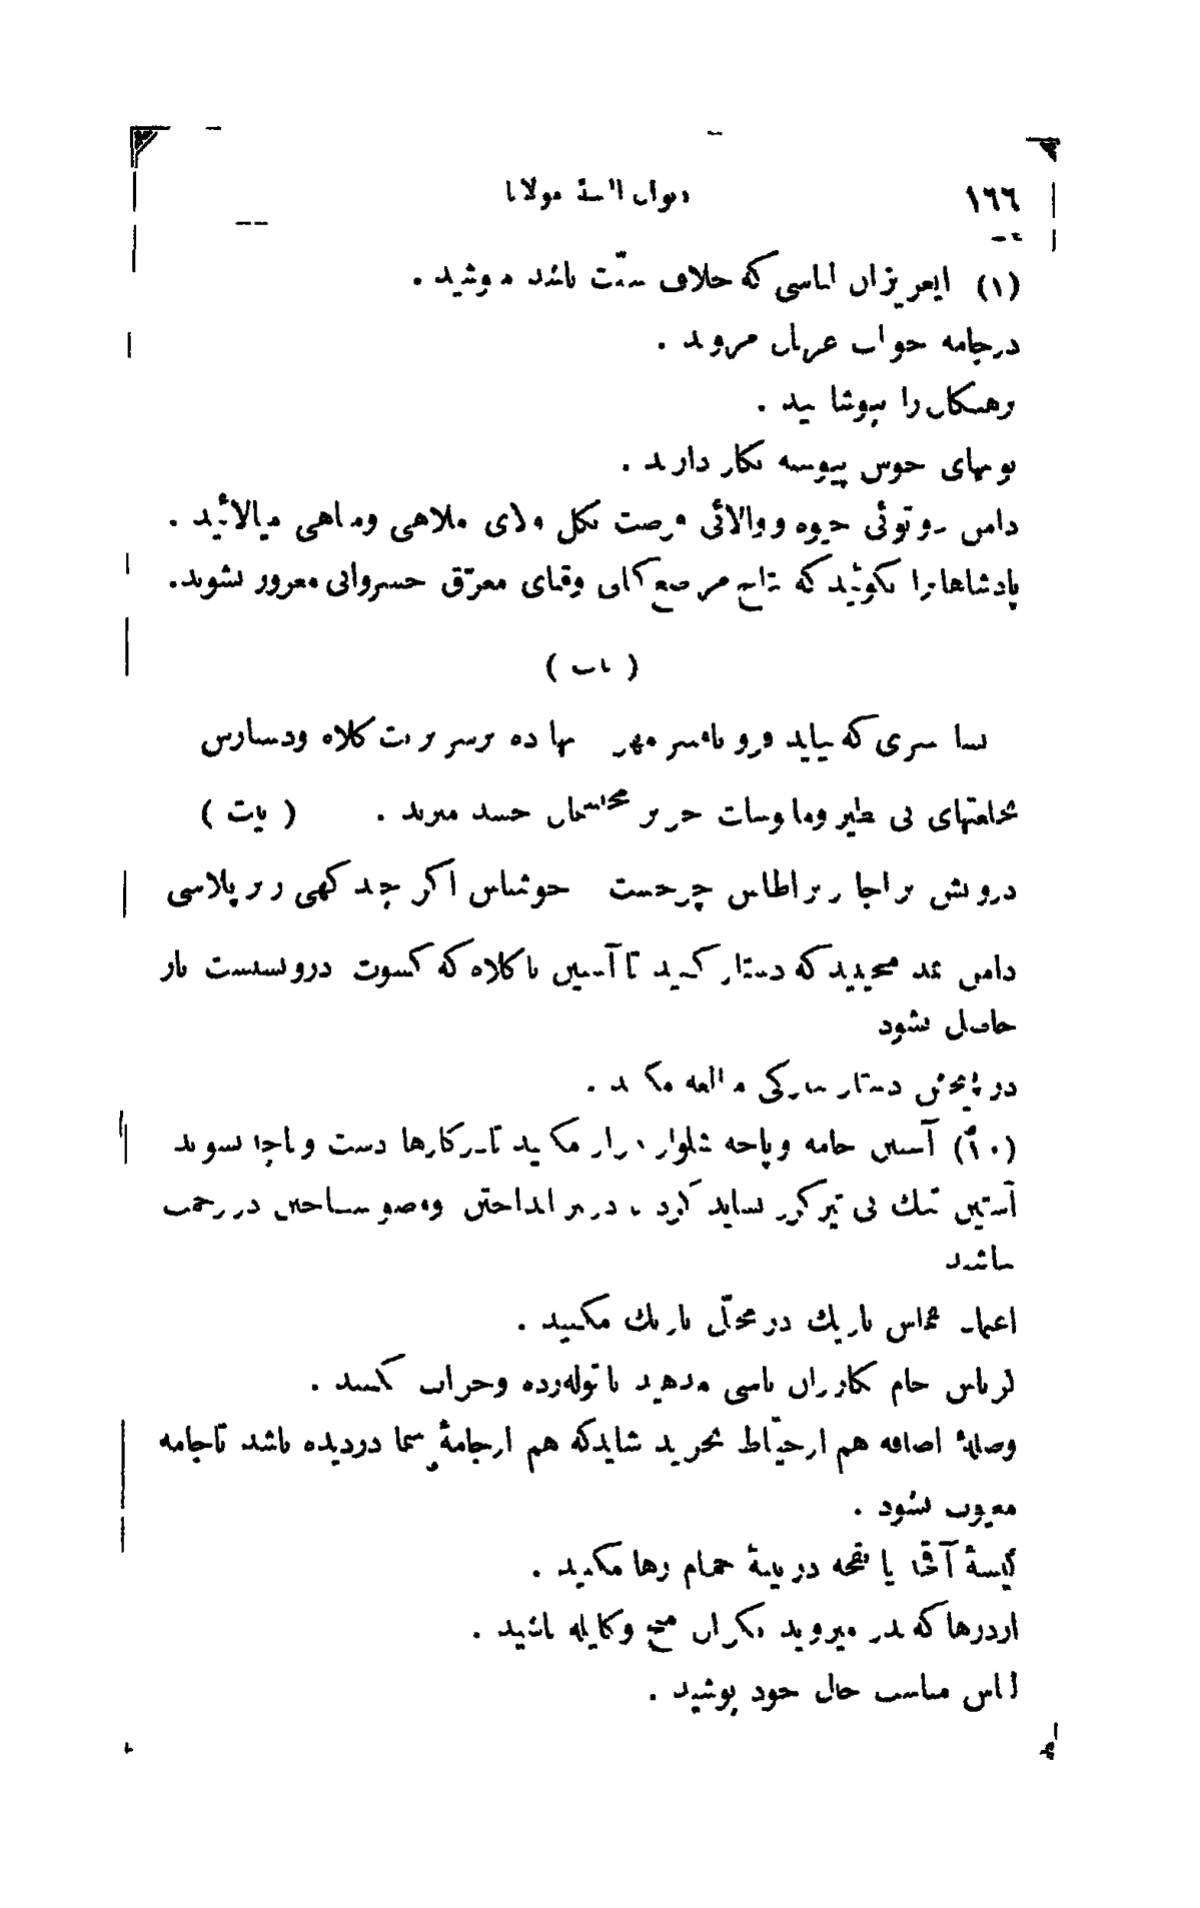 ١٦٦ دیوان البسهٔ مولانا
(١) ایعزیزان لباسی که خلاف سنّت باشد مپوشید .
درجامه خواب عریان مروید .
برهنکان را بپوشا نید .
بویهای خوش پیوسته بکار دارید .
دامن نوتوئی جیوه ووالائی فرصت بکل ولای ملاهی ومناهی میالائید .
پادشاهانرا بکوئید که بتاج مرصع کانی وقبای معرّق خسروانی مغرور نشوید.
( بیت )
بسا سری که بیاید فرو بافسر مهر نهاده برسر تربت کلاه ودستارش
بخلعتهای بی طیر وملبوسات حریر محتشمان حسد مبرید . ( بیت )
درویش براجا زبراطلس چرخست خوشباش اکر چند کهی زیر پلاسی
دامن نمد مچینید که دستار کنید تا آستین باکلاه که کسوت درویشیست یار
حاصل شود
در پیچش دستار بزرکی مبالغه مکنید .
(١٠) آستین جامه وپاچه شلوار دراز مکنید تا درکارها دست وپاچه نشوید
آستین تنك بی تیرکرز نباید کرد ، در بر انداختن ووضو ساختن در زحمت
نباشید
اعتماد قماش باریك در محلّ باریك مکنید .
کرباس خام بکازران ناسی مدهید تا توله‌زده وخراب نکنند .
وصلهٔ اضافه هم ازخیّاط بخرید شاید که هم ازجامهٔ شما دزدیده باشد تاجامه
معیوب نشود .
کیسهٔ آقچه یا بقچه در بینهٔ حمام رها مکنید .
ازدرها که بدر میروید نکران میخ وکلیله باشید .
لباس مناسب حال خود پوشید .